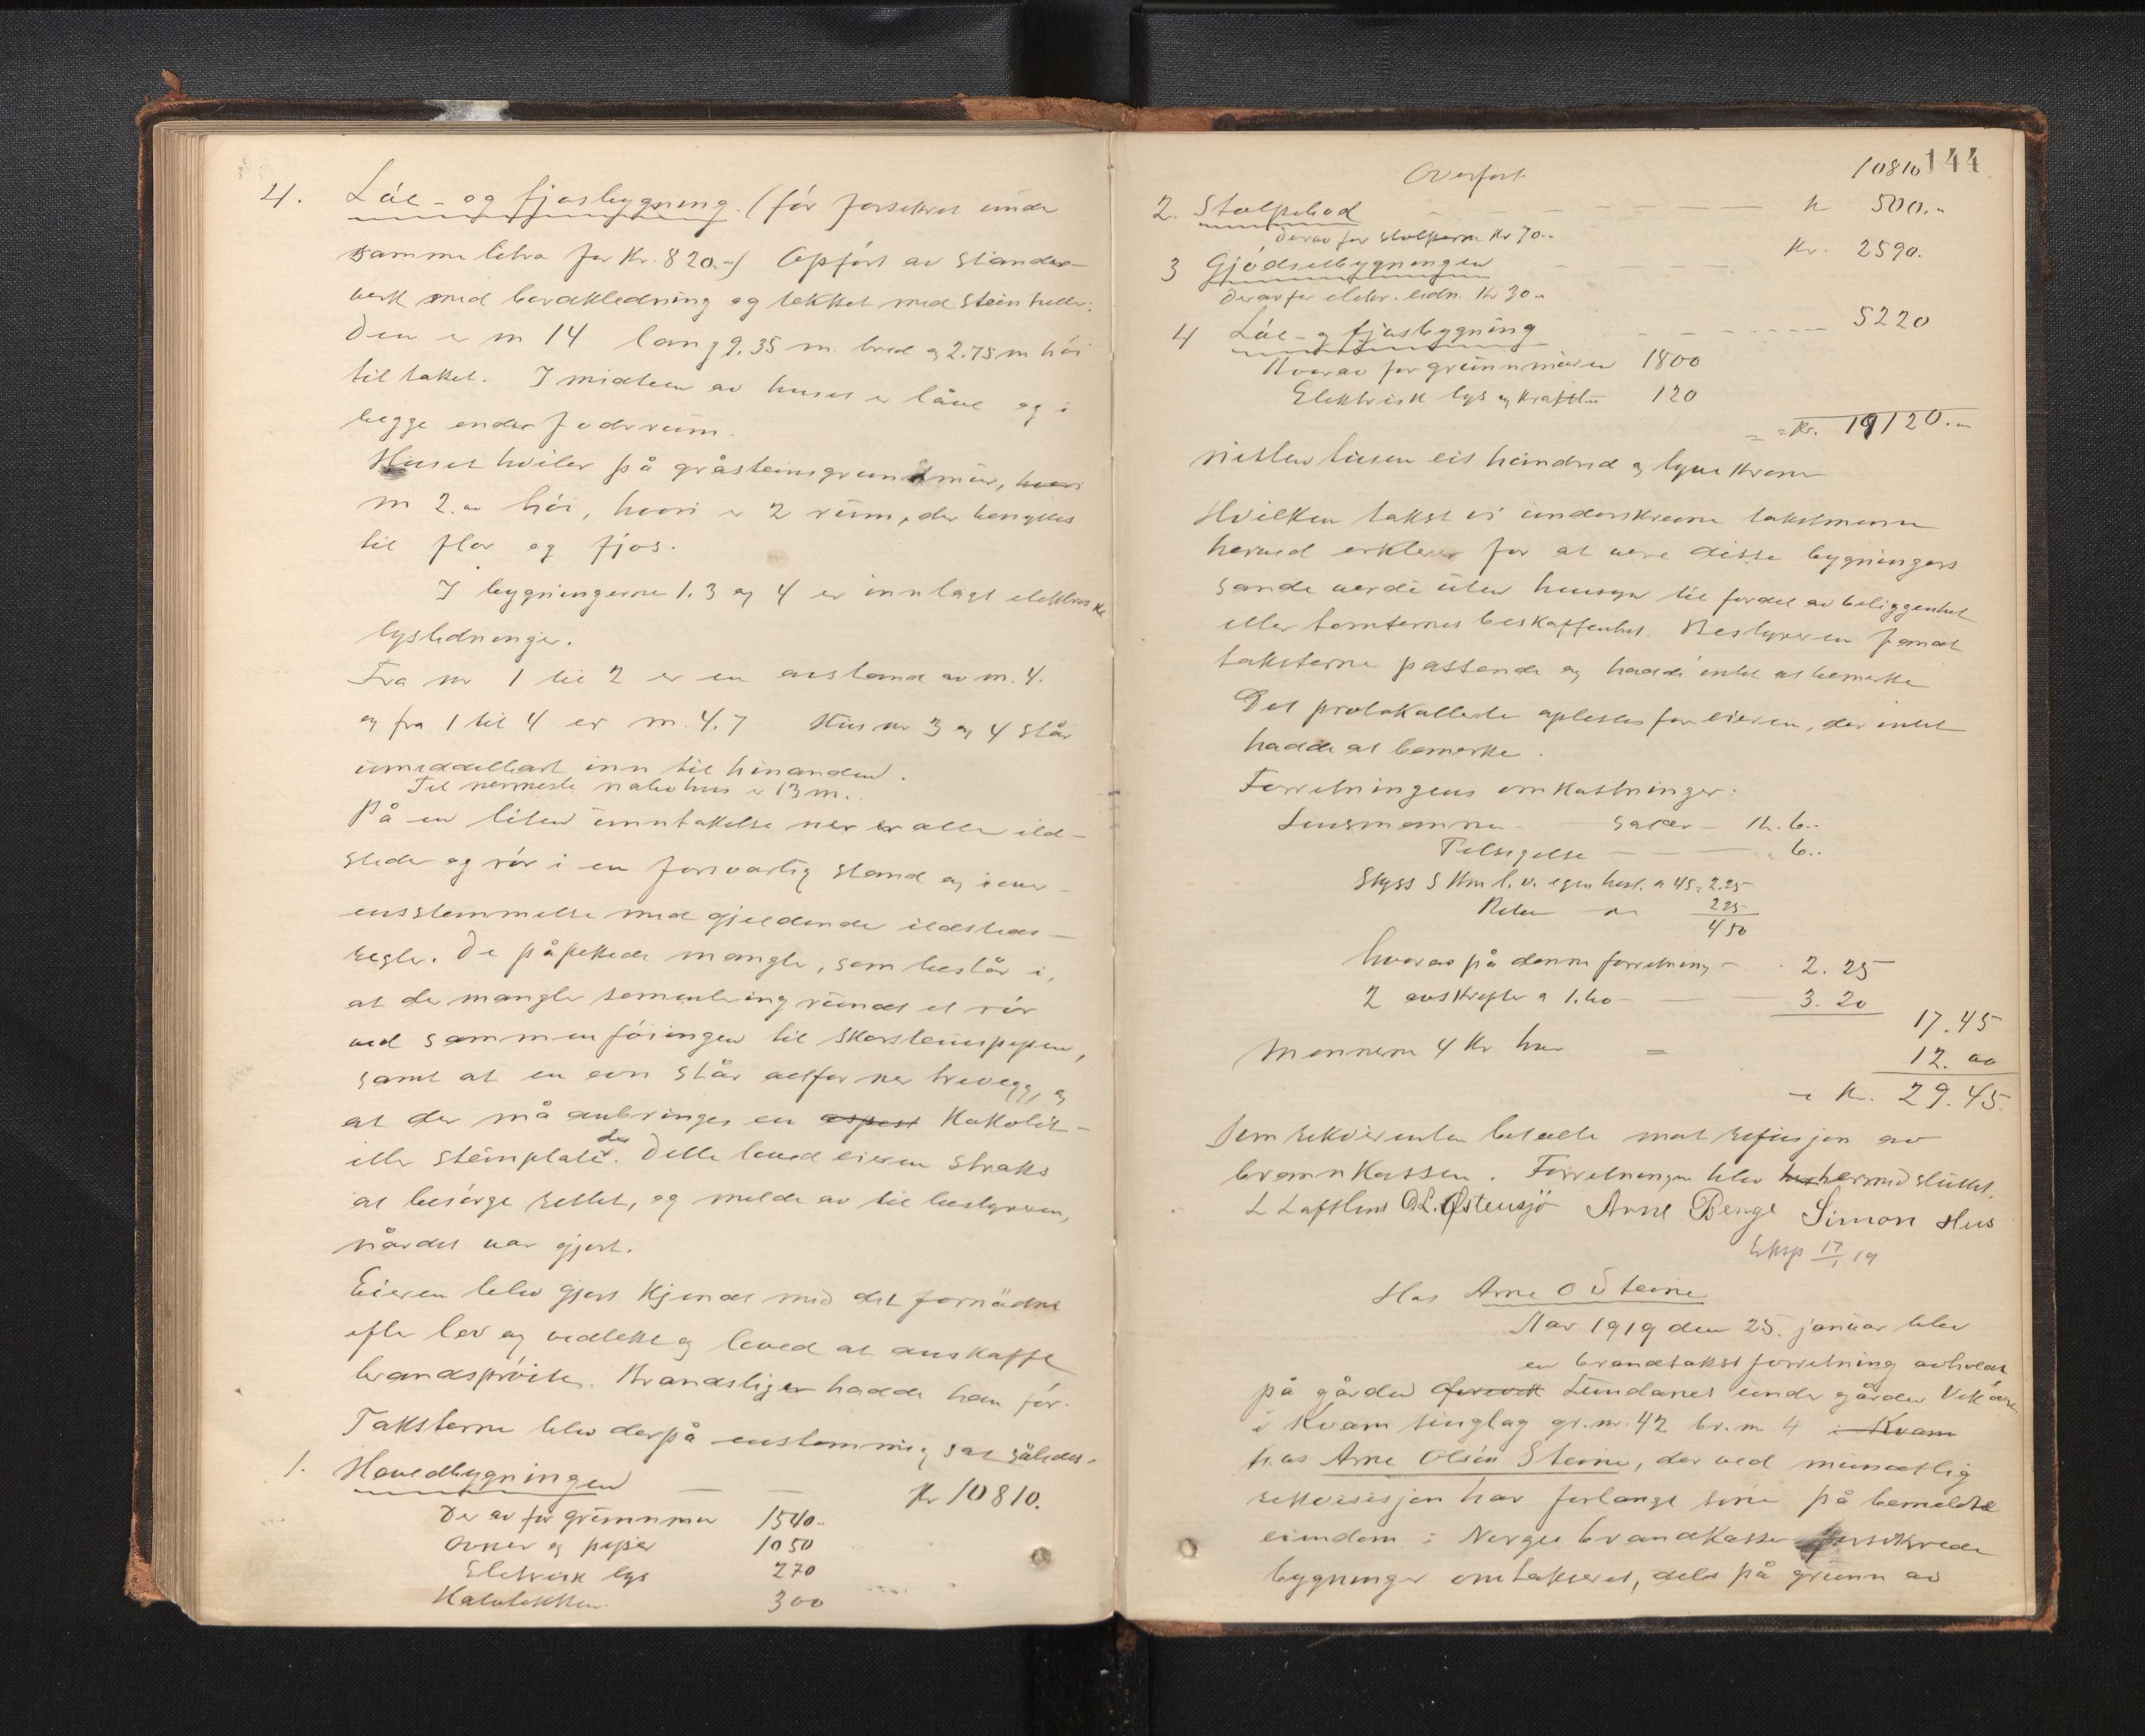 4. Löe- og fjosbygning. (før forsikret under
samme litra for Kr. 820.-) Opført av stender-
verk med bordkledning og tekket med steinheller.
Den er m 14 lang 9.35 m bred og 2.75 m høi
til taket. I midten av huset er låve og i
begge ender foderrum.
Huset hviler på gråsteinsgrundmur, hvori
m 2.- høi, hvori er 2 rum, der benyttes
til flor og fjos.
I bygningerne 1. 3 og 4 er innlagt elektriske
lysledninger.
Fra nr 1 til 2 er en avstand av m. 4.
og fra 1 til 4 er m. 4.7 Hus nr 3 og 4 står
umiddelbart inn til hinanden.
Til nermeste nabohus er 13 m.
På en liten unntakelse ner er alle ild-
steder og rør i en forsvarlig stand og i over-
ensstemmelse med gjeldende ildsteds-
regler. De påpekede mangler, som består i,
at der mangler sementering rundt et rør
ved sammenføiningen til skorsteinspipen,
samt at en ovn står altfor ner trevegg, og
at der må anbringes en aspest Kakolit-
eller steinplate der. Dette loved eieren straks
at besørge rettet, og melde av til bestyreren,
når det var gjort.
Eieren blev gjort kjendt med det fornødne
efter lov og vedtekt og loved at anskaffe
brandsprøite. Brandstiger hadde han før.
Taksterne blev derpå enstemmig sat således.
1. Hovedbygningen Kr 10810.
Derav for grunnmur 1540.-
Ovner og piper 1050
Elektrisk lys 270
300
144
Overført 10810
2. Stolpebod kr 500.-
Derav for stolperne Kr 70.-
3 Gjødselbygningen Kr. 2590.
Derav for elektr. ledn. Kr 30.-
4 Löe- og fjosbygning 5220
Hvorav for grunnmuren 1800
Elektrisk lys og kraft 120
= Kr. 19120.-
nitten tusen eit hundred og tyve Kroner
Hvilken takst vi underskrevne takstmenn
herved erklerer for at vere disse bygningers
sande verdi uten hensyn til fordel av beliggenhet
eller tomternes beskaffenhet. Bestyreren fandt
taksterne passende og hadde intet at bemerke
Det protokollerte oplestes for eieren, der intet
hadde at bemerke.
Forretningens omkostninger:
Lensmannen Saler Kr. 6.-
Tilsigelse 6.-
Skyss 5 Km l. v. egen hest. a 45 = 2.25
Retur 2.25
4.50
hvorav på denne forretning 2.25
2 avskrifter a 1.60 3.20
17.45
Mennerne 4 Kr hver = 12.00
Kr. 29.45
Som rekvirenten betalte mot refusjon av
brannkassen. Forretningen blev hermed sluttet.
L Lofthus O.L. Østensjö Arne Berge Simon Hus
Eksp 17/1 19
Hos Arne O Steine
Aar 1919 den 25. januar blev
en brandtakstforretning avholdt
på gården Tundanes under gården Vikøen
i Kvam tinglag gr.nr. 42 br.nr 4 i Kvam
hos Arne Olsen Steine, der ved mundtlig
rekvisisjon har forlangt sine på bemeldte
eiendom i Norges brandkasse forsikrede
bygninger omtakseret, dels på grunn av